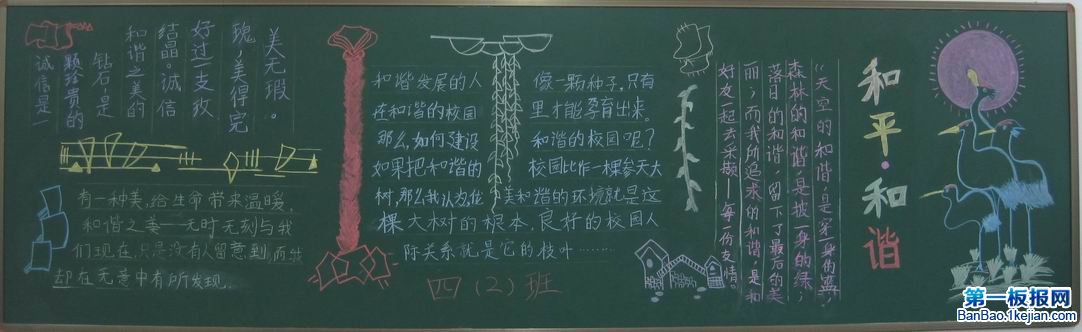 诚信是一
颗珍贵的
钻石,是
和谐之美的
结晶。诚信
好过一支玫
瑰,美得完
美无瑕。
有一种美,给生命带来温暖,
和谐之美——无时无刻与我
们现在,只是没有人留意到,而我
却在无意中有所发现。
和谐发展的人像一颗种子,只有
在和谐的校园里才能孕育出来。
那么,如何建设和谐的校园呢?
如果把和谐的校园比作一棵参天大
树,那么我认为,优美和谐的环境就是这
棵大树的根本,良好的校园人
际关系就是它的枝叶………
四(2)班
“天空的和谐,是穿一身的蓝;
森林的和谐,是披一身的绿;
落日的和谐,留下了最后的美
丽;而我所追求的和谐,是和
好友一起去采撷—每一份友情。
和平·和谐
第一板报网
BanBao.1kejian.com